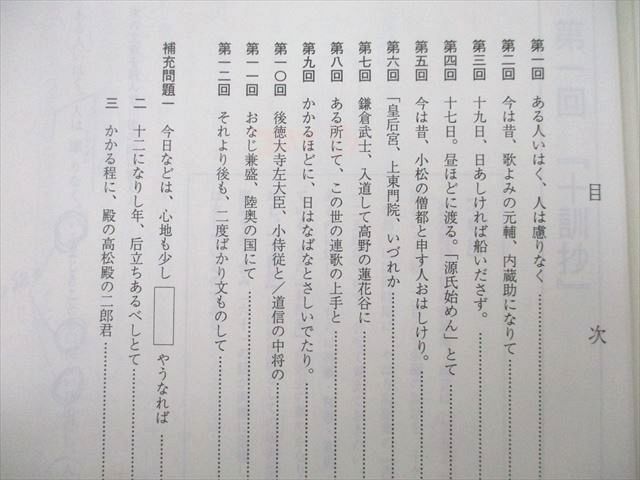 目次
第一回 ある人いはく、人は慮りなく
第二回 今は昔、歌よみの元輔、内蔵助になりて
第三回 十九日、日あしければ船いださず。
第四回 十七日。昼ほどに渡る。「源氏始めん」とて
第五回 今は昔、小松の僧都と申す人おはしけり。
第六回 「皇后宮、上東門院、いづれか
第七回 鎌倉武士、入道して高野の蓮花谷に
第八回 ある所にて、この世の連歌の上手と
第九回 かかるほどに、日はなばなとさしいでたり。
第一〇回 後徳大寺左大臣、小侍従と／道信の中将の
第一一回 おなじ兼盛、陸奥の国にて
第一二回 それより後も、二度ばかり文ものして
補充問題一 今日などは、心地も少し　やうなれば
二 十二になりし年、后立ちあるべしとて
三 かかる程に、殿の高松殿の二郎君
第一回 『十訓抄』